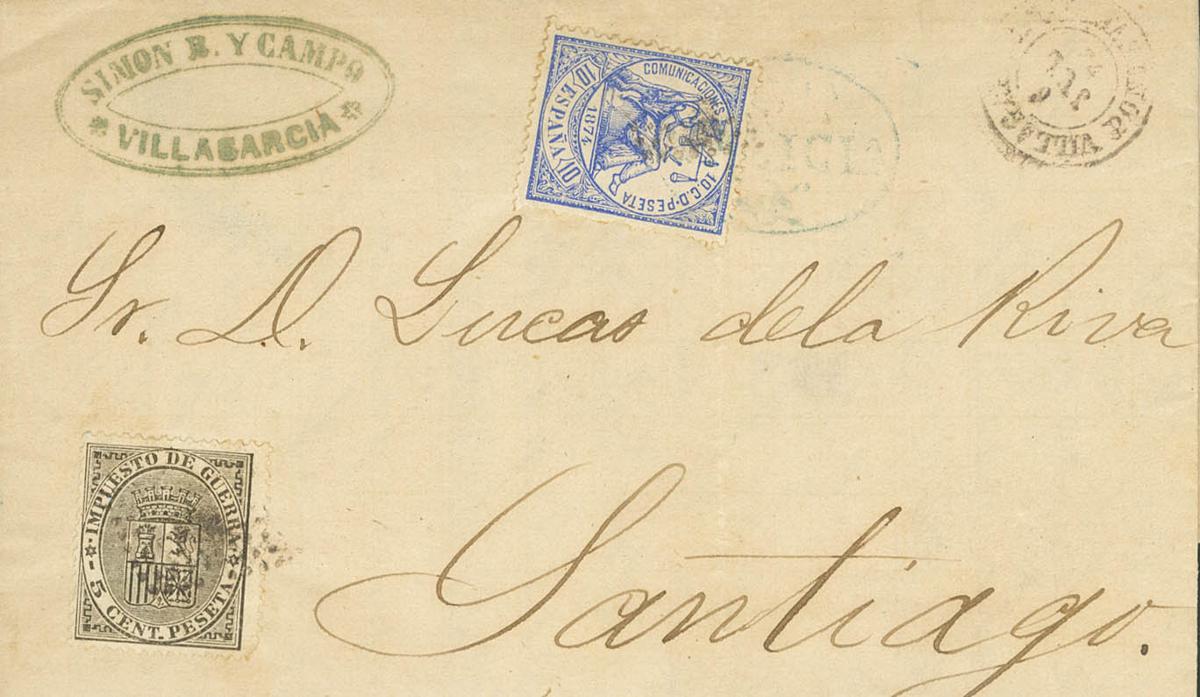 SIMON R. Y CAMPO
VILLAGARCIA
COMUNICACIONES
ESPAÑA
1874
10 C. D. PESETA
Sr. D. Lucas dela Riva
IMPUESTO DE GUERRA
5 CENT. PESETA
Santiago.